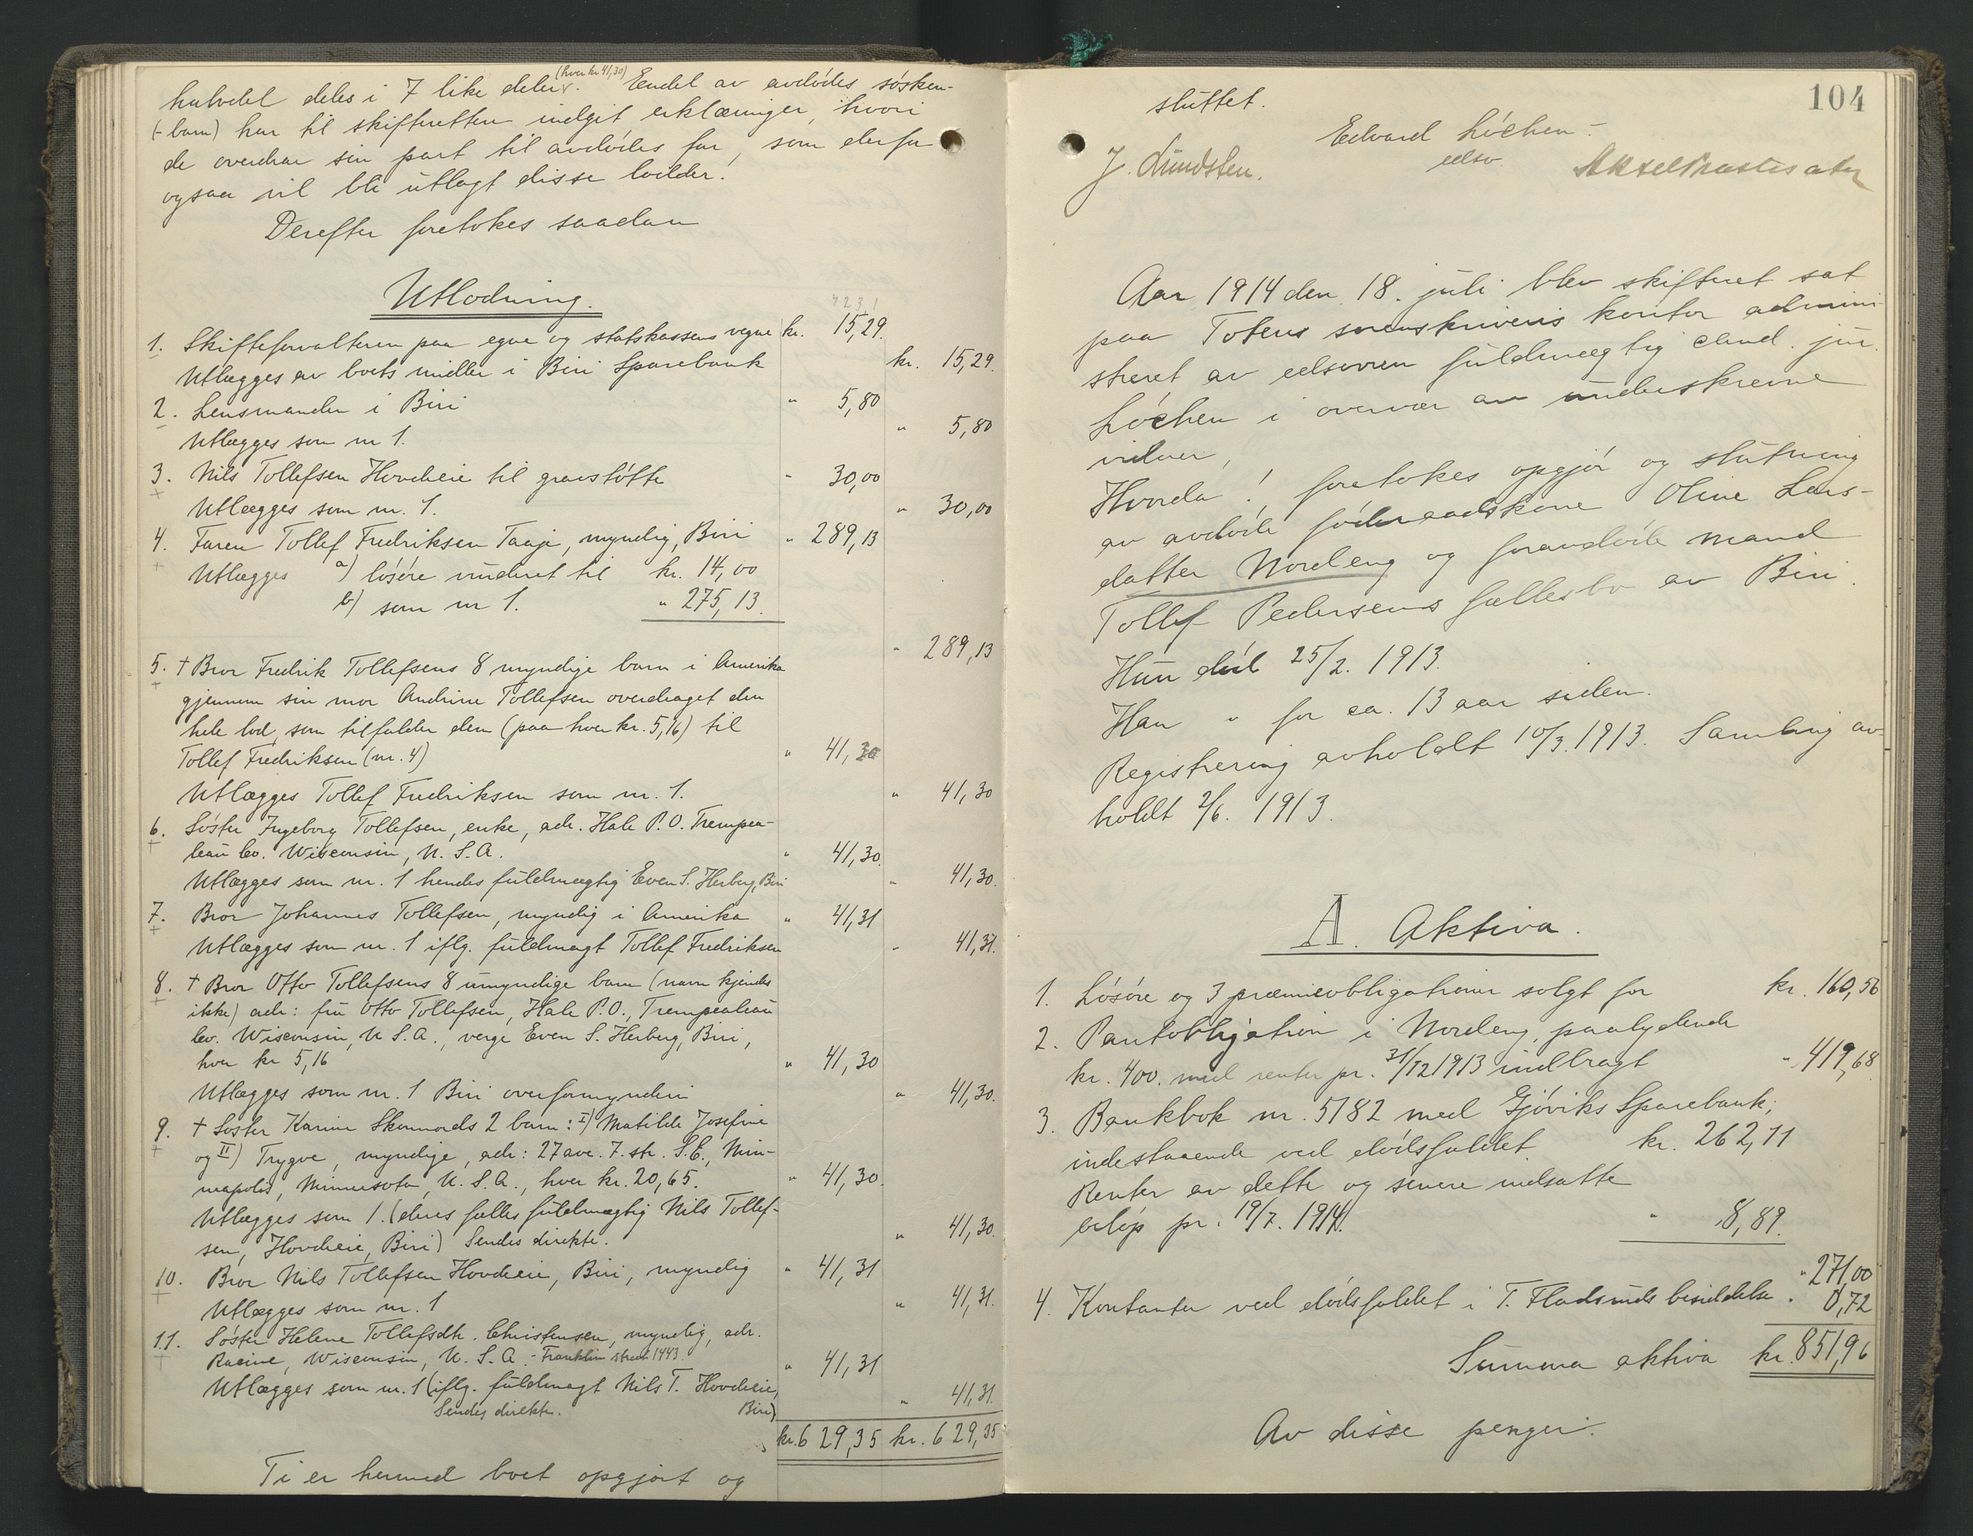 halvdel deles i 7 like deler (hver kr 41,30). Endel av avdødes søsken-
(-barn) har til skifteretten indgit erklæringer, hvori
de overdrar sin part til avdødes far, som derfor
ogsaa vil bli utlagt disse lodder.
Derefter foretokes saadan
Utlodning.
1. Skifteforvalteren paa egne og statskassens vegne kr. 15,29.
Utlægges av boets midler i Biri Sparebank kr. 15,29.
2. Lensmanden i Biri " 5,80
Utlægges som nr 1. " 5,80
3. Nils Tollefsen Hovdeie til gravstøtte " 30,00
Utlægges som nr. 1. " 30,00
4. Faren Tollef Fredriksen Taaje, myndig, Biri " 289,13
Utlægges a) løsøre vurderet til kr. 14,00
b) som nr 1. " 275,13.
" 289,13
5. + Bror Fredrik Tollefsens 8 myndige barn i Amerika
gjennem sin mor Andrine Tollefsen overdraget den
hele lod, som tilfalder dem (paa hver kr. 5,16) til
Tollef Fredriksen (nr. 4) " 41,30
Utlægges Tollef Fredriksen som nr. 1. " 41,30
6. Søster Ingeborg Tollefsen, enke, adr. Hale P.O. Trempea-
leau Co. Wisconsin, U. S. A. " 41,30.
Utlægges som nr. 1 hendes fuldmægtig Even S. Herberg, Biri " 41,30.
7. Bror Johannes Tollefsen, myndig i Amerika " 41,31
Utlægges som nr. 1 iflg. fuldmagt Tollef Fredriksen " 41,31.
8. + Bror Otto Tollefsens 8 umyndige barn (navn kjendes
ikke) adr: fru Otto Tollefsen, Hale P.O., Trempealeau
Co. Wisconsin, U. S. A., verge Even S. Herberg, Biri,
hver kr 5,16 " 41,30
Utlægges som nr. 1 Biri overformynderi " 41,30.
9. + Søster Karine Skonnords 2 barn: I) Matilde Josefine
og II) Trygve, myndige, adr: 27 ave. 7. str. S.E., Min-
neapolis, Minnesota, U. S. A., hver kr. 20,65. " 41,30.
Utlægges som 1. (deres fælles fuldmægtig Nils Tollef-
sen, Hovdeie, Biri) Sendes direkte. " 41,30.
10. Bror Nils Tollefsen Hovdeie, Biri, myndig " 41,31
Utlægges som nr. 1 " 41,31.
11. Søster Helene Tollefsdtr. Christensen, myndig, adr.
Racine, Wisconsin, U. S. A. - Franklin street 1443. " 41,31
Utlægges som nr. 1 (iflg. fuldmagt Nils T. Hovdeie, " 41,31.
Sendes direkte. Biri)
kr. 629,35 kr. 629,35
Ti er hermed boet opgjort og
104
sluttet.
Edvard Løchen.
edsv.
J. Lundsten.
Aar 1914 den 18. juli blev skifteret sat
paa Totens sorenskriveris kontor admini-
streret av edsvoren fuldmægtig cand. jur.
Løchen i overvær av underskrevne
vidner,
Hvorda! foretokes opgjør og slutning
av avdøde føderaadskone Oline Lars-
datter Nordeng og foravdøde mand
Tollef Pedersens fællesbo av Biri.
Hun død 25/2. 1913.
Han " for ca. 13 aar siden.
Registrering avholdt 10/3. 1913. Samling av-
holdt 2/6. 1913.
A. Aktiva.
1. Løsøre og 3 præmieobligationer solgt for kr. 160,56
2. Pantobligation i Nordeng, paalydende
kr. 400. med renter pr. 31/12 1913 inddragt " 419,68
3. Bankbok nr. 5182 med Gjøviks Sparebank;
indestaaende ved dødsfaldet. kr. 262,11
Renter av dette og senere indsatte
beløp pr. 19/7. 1914. " 8,89.
" 271,00
4. Kontanter ved dødsfaldet i T. Fladsruds besiddelse " 0,72
Summa aktiva kr. 851,96
Av disse penger.